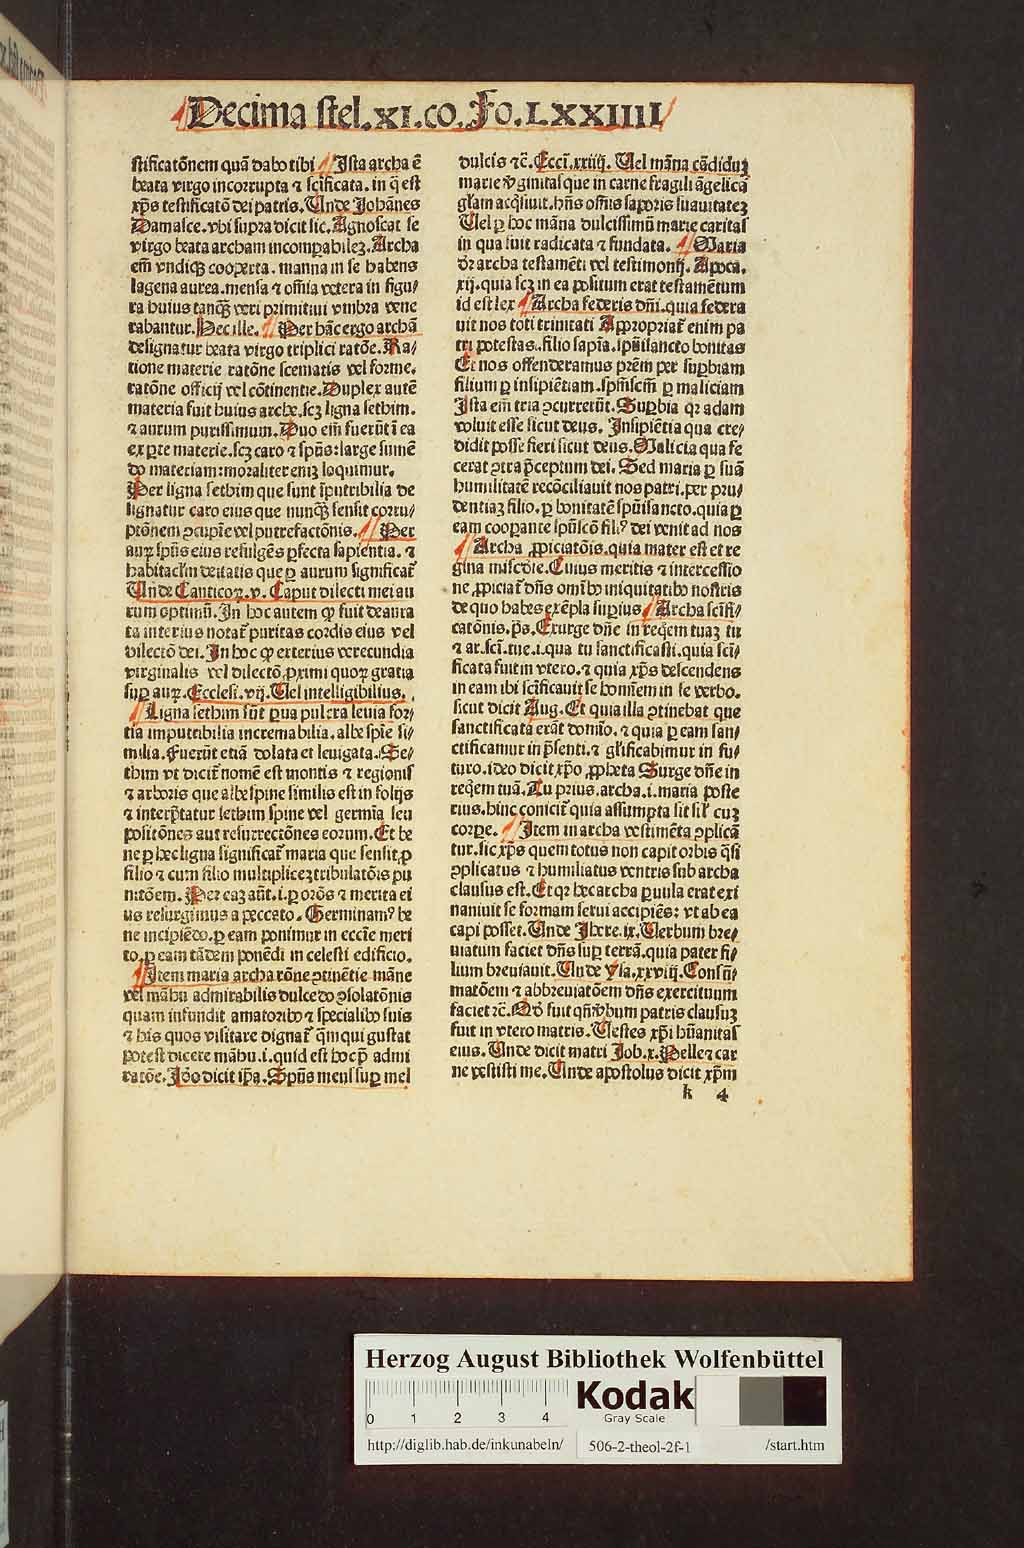 Decima stel.XI.co.Fo.LXXIIII
stificatōnem quā dabo tibi Ista archa ē
beata virgo incorrupta ⁊ scīficata. in q̄ est
xp̄s testificatō dei patris. Unde Johānes
Damasce. vbi supra dicit sic. Agnoscat se
virgo beata archam incomꝑabilez. Archa
em̄ vndiqꝫ cooperta. manna in se habens
lagena aurea. mensa ⁊ om̄ia vetera in figu⸗
ra huius tanqꝫ veri primitiui vmbra vene
rabantur. Hec ille. Per hāc ergo archā
designatur beata virgo triplici ratōe. Ra⸗
tione materie ratōne scematis vel forme.
ratōne officij vel cōtinentie. Duplex autē
materia fuit huius arche. scꝫ ligna sethim.
⁊ aurum purissimum. Duo em̄ fuerūt ī ea
ex ꝑte materie. scꝫ caro ⁊ spūs: large sumē
do materiam: moraliter enīꝫ loquimur.
Per ligna sethim que sunt īputribilia de
signatur caro eius que nunqꝫ sensit corru⸗
ptōnem ↄcupīe vel putrefactōnis. Per
auꝝ spūs eius refulgēs ꝑfecta sapientia. ⁊
habitacl'm deitatis que ꝑ aurum significat᷑
Unde Canticoꝝ. v. Caput dilecti mei au
rum optimū. In hoc autem ꝙ fuit deaura
ta interius notat᷑ puritas cordis eius vel
dilectō dei. In hoc ꝙ exterius verecundia
virginalis vel dilectō ꝓximi quoꝝ gratia
suꝑ auꝝ. Ecclesi. vij. Uel intelligibilius.
Ligna sethim sūt ꝑua pulcra leuia for⸗
tia imputribilia incremabilia. albe spīe si⸗
milia. Fuerūt etiā dolata et leuigata. Se⸗
thim vt dicit᷑ nomē est montis ⁊ regionis
⁊ arboris que albe spine similis est in folijs
⁊ interp̄tatur sethim spine vel germīa seu
positōnes aut resurrectōnes eorum. Et be
ne ꝑ hec ligna significat᷑ maria que sensit ꝓ
filio ⁊ cum filio multiplicez tribulatōis pu
nitōem. Per eaꝫ aūt. i. ꝑ orōs ⁊ merita ei
us resurgimus a peccato. Germinamꝰ be
ne incipiēdo. ꝑ eam ponimur in ecclīe meri
to. ꝑ eam tādem ponēdi in celesti edificio.
Item maria archa rōne ↄtinētie māne
vel māhu admirabilis dulcedo ↄsolatōnis
quam infundit amatoribꝰ ⁊ specialibꝰ suis
⁊ his quos visitare dignat᷑ q̄m qui gustat
potest dicere māhu. i. quid est hoc p̄ admi
ratōe. Ideo dicit ip̄a. Spūs meus suꝑ mel
dulcis ⁊c̄. Eccī. xxiiij. Uel māna cādiduꝫ
marie v̄ginitas que in carne fragili āgelicā
gl'am acq̄siuit. hn̄s om̄is saporis suauitatez
Uel ꝑ hoc māna dulcissimū marie caritas
in qua fuit radicata ⁊ fundata. Maria
dr̄ archa testamēti vel testimonij. Apoca.
xij. quia scꝫ in ea positum erat testamētum
id est lex Archa federis dn̄i. quia federa
uit nos toti trinitati Appropriat᷑ enim pa
tri potestas. filio sapīa. spūisancto bonitas
Et nos offenderamus prēm per suꝑbiam
filium ꝑ insipiētiam. spm̄scm̄ ꝑ maliciam
Ista em̄ tria ↄcurrerūt. Suꝑbia qꝛ adam
voluit esse sicut deus. Insipiētia qua cre⸗
didit posse fieri sicut deus. Malicia qua fe
cerat ↄtra p̄ceptum dei. Sed maria ꝑ suā
humilitatē recōciliauit nos patri. per pru⸗
dentiaꝫ filio. ꝑ bonitatē spūisancto. quia ꝑ
eam cooꝑante spūscō filiꝰ dei venit ad nos
Archa ꝓpiciatōis. quia mater est et re
gina misc̄die. Cuius meritis ⁊ intercessio
ne ꝓpiciat᷑ dn̄s om̄ibꝰ iniquitatibꝰ nostris
de quo habes exēpla suꝑius Archa scīfi⸗
catōnis. p̄s. Exurge dn̄e in req̄em tuaꝫ tu
⁊ ar. scī. tue. i. qua tu sanctificasti. quia scī⸗
ficata fuit in vtero. ⁊ quia xp̄s descendens
in eam ibi scīficauit se hominem in se verbo.
sicut dicit Aug. Et quia illa ↄtinebat que
sanctificata erāt domīo. ⁊ quia ꝑ eam san⸗
ctificamur in p̄senti. ⁊ gl'ificabimur in fu⸗
turo. ideo dicit xp̄o ꝓpheta Surge dn̄e in
req̄em tuā. Tu prius. archa. i. maria poste
rius. hinc conicit᷑ quia assumpta sit sil' cuꝫ
corꝑe. Item in archa vestimēta ↄplicā
tur. sic xp̄s quem totus non capit orbis q̄si
ↄplicatus ⁊ humiliatus ventris sub archa
clausus est. Et qꝛ hec archa ꝑuula erat exi
naniuit se formam serui accipiēs: vt ab ea
capi posset. Unde Jhere. ix. Uerbum bre⸗
uiatum faciet dn̄s suꝑ terrā. quia pater fi⸗
lium breuiauit. Unde ysa. xxviij. Consūⸯ
matōem ⁊ abbreuiatōem dn̄s exercituum
faciet ⁊c̄. Qd̓ fuit qn̄ v̄bum patris clausuꝫ
fuit in vtero matris. Uestes xp̄i hūanitas
eius. Unde dicit matri Job. x. Pelle ⁊ car
ne vestisti me. Unde apostolus dicit xp̄m
k 4
Herzog August Bibliothek Wolfenbüttel
0 1 2 3 4
Kodak
Gray Scale
http://diglib.hab.de/inkunabeln/ 506-2-theol-2f-1 /start.htm